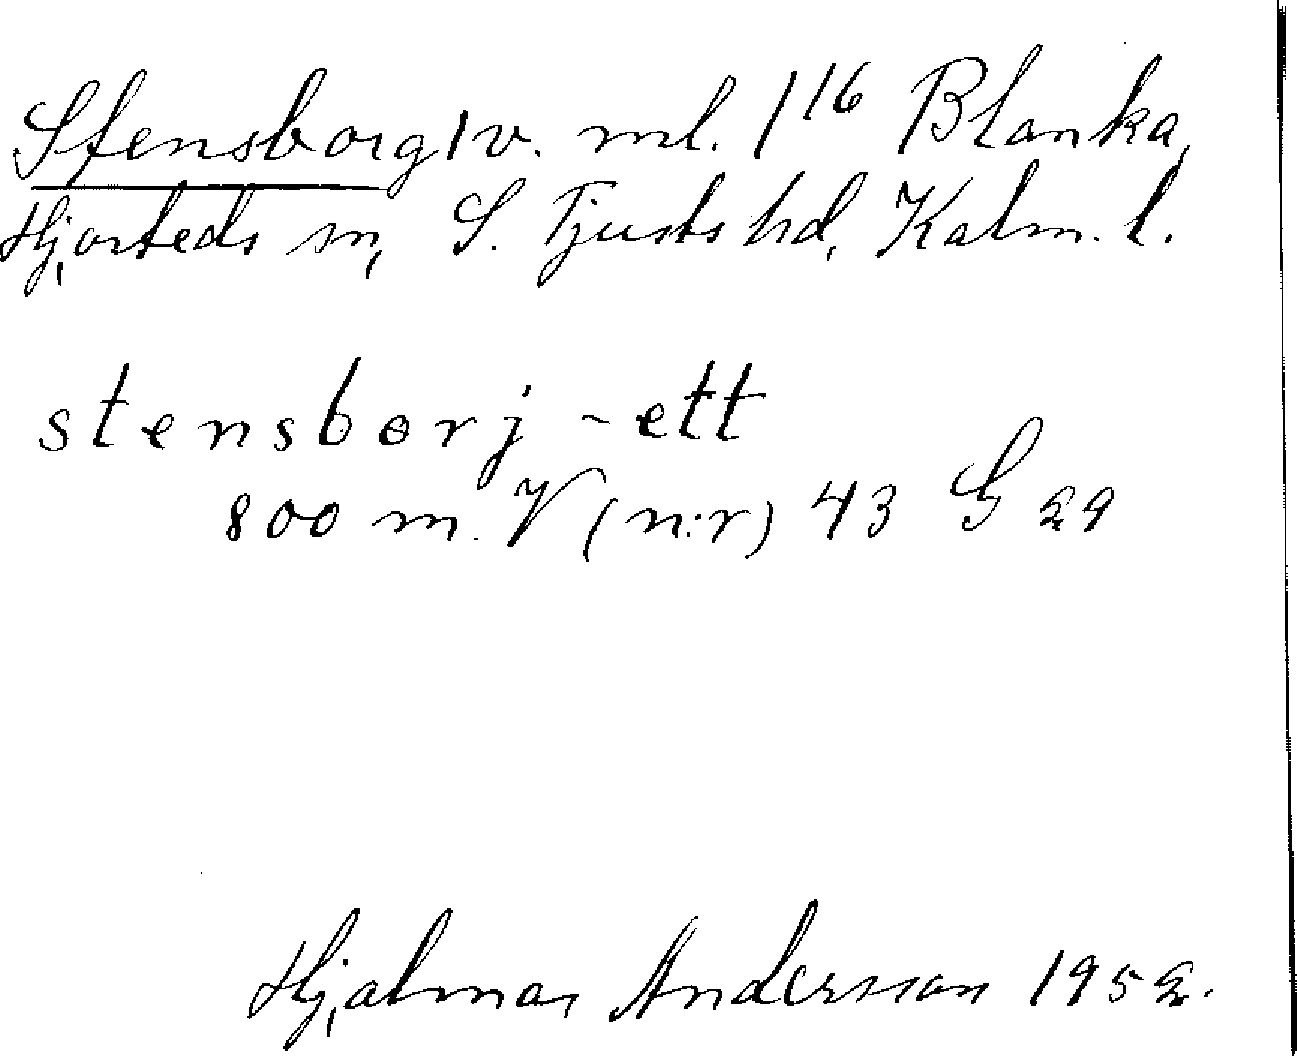 Stensborg 1 v. ml. 1 16 Blanka,
Hjorteds sn, S. Tjusts hd, Kalm. l.
stensborj - ett
800 m. V (n:r) 43 G 29
Hjalmar Andersson 1952.